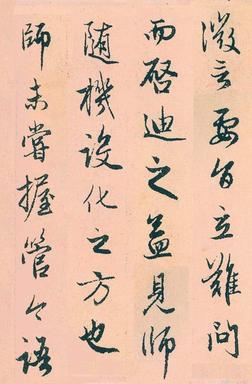 微言要旨立難問
而啓迪之益見師
随機設化之方也
師未嘗握管今語